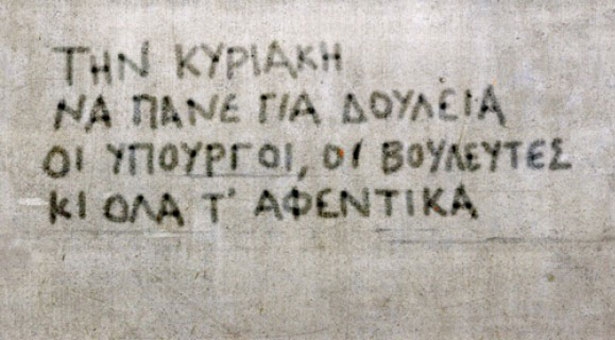 ΤΗΝ ΚΥΡΙΑΚΗ
ΝΑ ΠΑΝΕ ΓΙΑ ΔΟΥΛΕΙΑ
ΟΙ ΥΠΟΥΡΓΟΙ, ΟΙ ΒΟΥΛΕΥΤΕΣ
ΚΙ ΟΛΑ Τ' ΑΦΕΝΤΙΚΑ